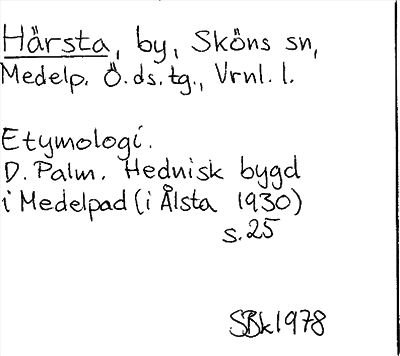 Härsta, by, Sköns sn,
Medelp. Ö.ds.tg., Vrnl. l.
Etymologi.
D. Palm. Hednisk bygd
i Medelpad (i Ålsta 1930)
s. 25
SBk1978